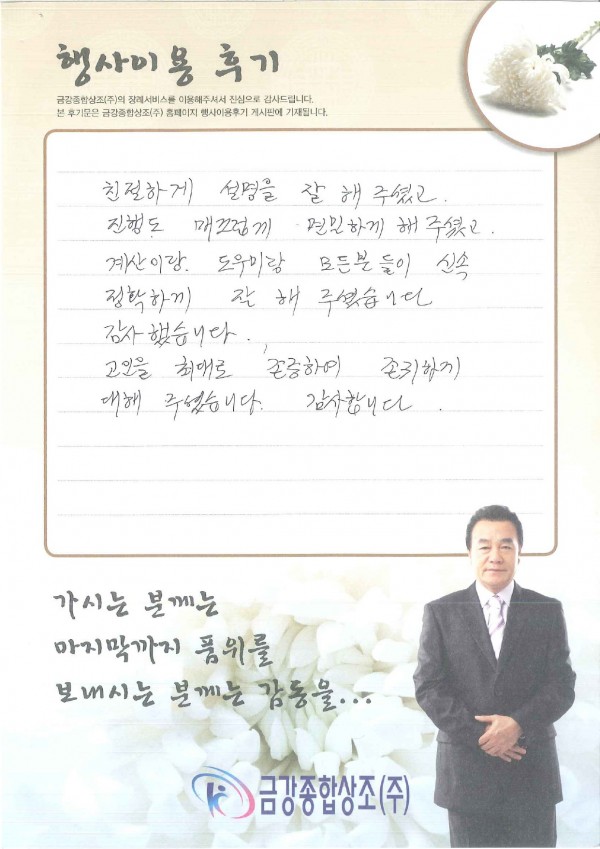 행사이용 후기
금강종합상조(주)의 장례서비스를 이용해주셔서 진심으로 감사드립니다.
본 후기문은 금강종합상조(주) 홈페이지 행사이용후기 게시판에 기재됩니다.
친절하게 설명을 잘 해 주셨고.
진행도 매끄럽게 면밀하게 해 주셨고.
계산이랑. 도우미랑 모든분들이 신속
정확하게 잘 해 주셨습니다
감사했습니다.
고인을 최대로 존중하여 존귀하게
대해 주셨습니다. 감사합니다.
가시는 분께는
마지막까지 품위를
보내시는 분께는 감동을...
금강종합상조(주)